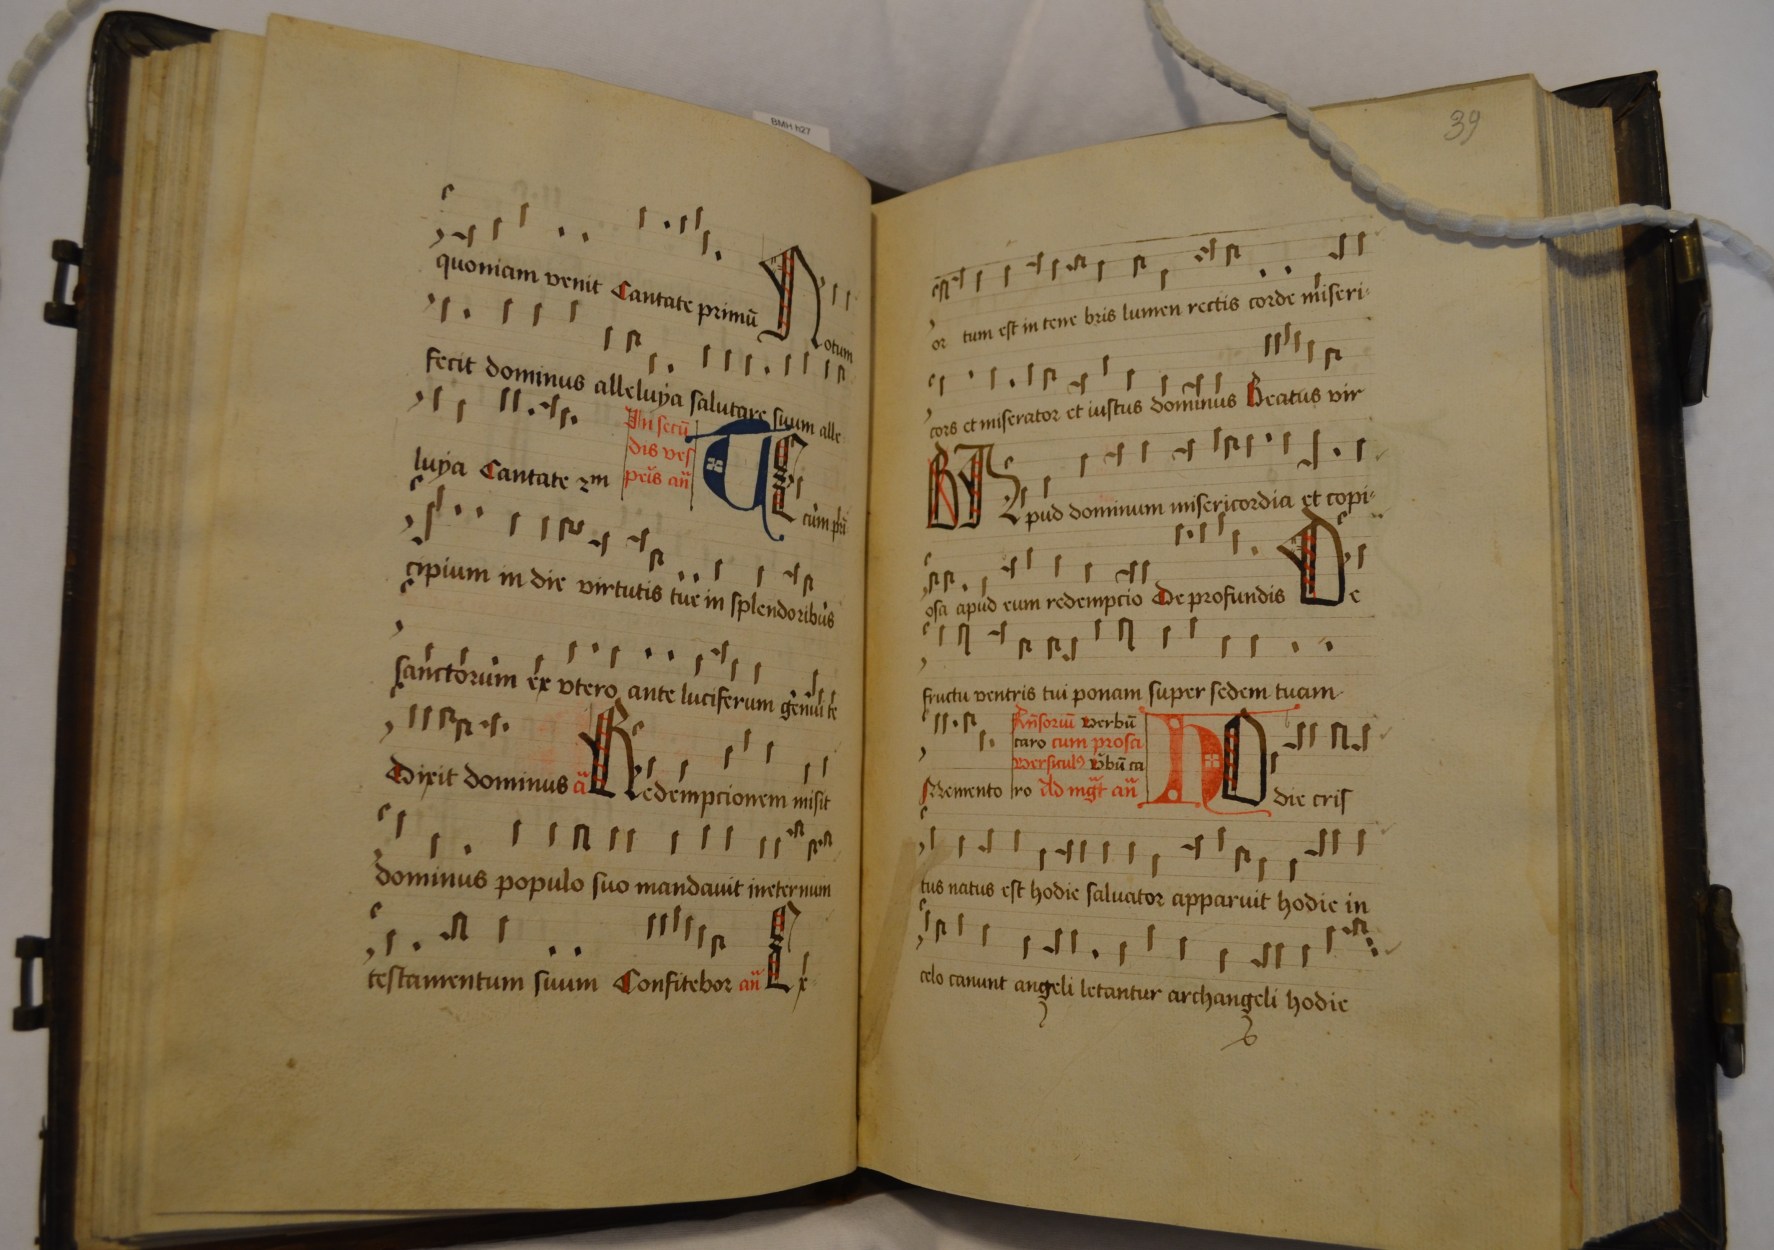 BMH h27
quoniam venit Cantate primū Notum
fecit dominus alleluya salutare suum alle
luya Cantate 2m In secū
dis vesp
peis añ
Tecum pri
cipium in die virtutis tue in splendoribus
sanctorum ex vtero ante luciferum genui te
Dixit dominus añ Redempcionem misit
dominus populo suo mandauit ineternum
testamentum suum Confitebor añ Ex
39
or tum est in tene bris lumen rectis corde miseri
cors et miserator et iustus dominus Beatus vir
Apud dominum misericordia et copi
osa apud eum redempcio De profundis De
fructu ventris tui ponam super sedem tuam
Memento verbū
caro cum prosa
ro Ad mgt añ
Hodie cris
tus natus est hodie saluator apparuit hodie in
celo canunt angeli letantur archangeli hodie